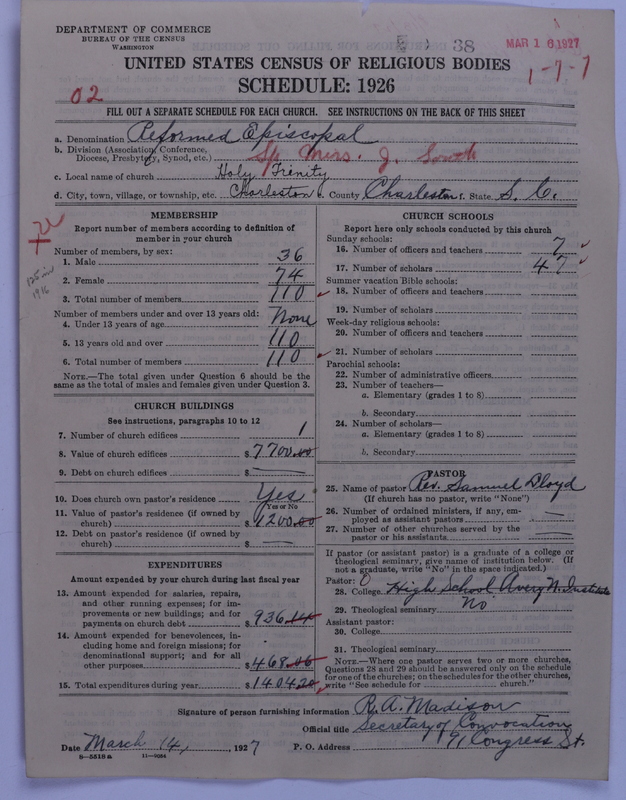 DEPARTMENT OF COMMERCE
BUREAU OF THE CENSUS
WASHINGTON
38
MAR 16 1927
1-7-7
UNITED STATES CENSUS OF RELIGIOUS BODIES
SCHEDULE: 1926
02
FILL OUT A SEPARATE SCHEDULE FOR EACH CHURCH. SEE INSTRUCTIONS ON THE BACK OF THIS SHEET
a. Denomination Reformed Episcopal
b. Division (Association, Conference,
Diocese, Presbytery, Synod, etc.) Sp Miss. J. South
c. Local name of church Holy Trinity
d. City, town, village, or township, etc. Charleston e. County Charleston f. State S. C.
MEMBERSHIP
Report number of members according to definition of
member in your church
Number of members, by sex:
1. Male 36
2. Female 74
3. Total number of members 110
Number of members under and over 13 years old:
4. Under 13 years of age None
5. 13 years old and over 110
6. Total number of members 110
NOTE.—The total given under Question 6 should be the
same as the total of males and females given under Question 3.
125 in
1916
CHURCH BUILDINGS
See instructions, paragraphs 10 to 12
7. Number of church edifices 1
8. Value of church edifices $7700.00
9. Debt on church edifices $
10. Does church own pastor's residence Yes
Yes or No
11. Value of pastor's residence (if owned by
church) $1200.00
12. Debt on pastor's residence (if owned by
church) $
EXPENDITURES
Amount expended by your church during last fiscal year
13. Amount expended for salaries, repairs,
and other running expenses; for im-
provements or new buildings; and for
payments on church debt $936.14
14. Amount expended for benevolences, in-
cluding home and foreign missions; for
denominational support; and for all
other purposes $468.06
15. Total expenditures during year $1404.20
CHURCH SCHOOLS
Report here only schools conducted by this church
Sunday schools:
16. Number of officers and teachers 7
17. Number of scholars 47
Summer vacation Bible schools:
18. Number of officers and teachers
19. Number of scholars
Week-day religious schools:
20. Number of officers and teachers
21. Number of scholars
Parochial schools:
22. Number of administrative officers
23. Number of teachers—
a. Elementary (grades 1 to 8)
b. Secondary
24. Number of scholars—
a. Elementary (grades 1 to 8)
b. Secondary
PASTOR
25. Name of pastor Rev. Samuel Lloyd
(If church has no pastor, write "None")
26. Number of ordained ministers, if any, em-
ployed as assistant pastors
27. Number of other churches served by the
pastor or his assistants
If pastor (or assistant pastor) is a graduate of a college or
theological seminary, give name of institution below. (If
not a graduate, write "No" in the space indicated.)
Pastor:
28. College High School Avery N. Institute
29. Theological seminary No
Assistant pastor:
30. College
31. Theological seminary
NOTE.—Where one pastor serves two or more churches,
Questions 28 and 29 should be answered only on the schedule
for one of the churches; on the schedules for the other churches,
write "See schedule for church."
Signature of person furnishing information R. A. Madison
Official title Secretary of Convocation
Date March 14, 1927 P. O. Address 91 Congress St.
8—5518a 11—9084